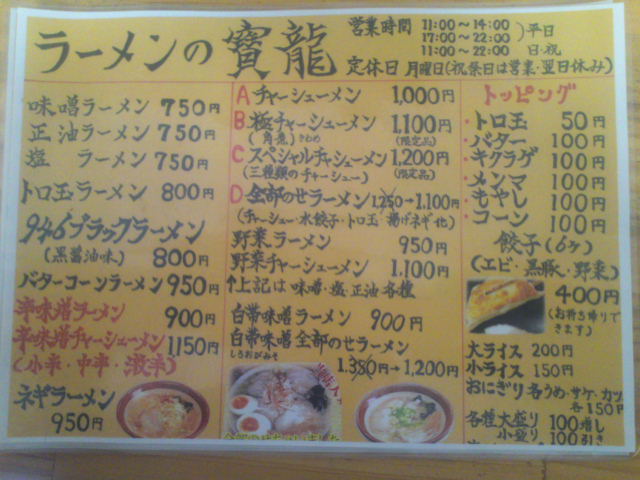 ラーメンの寳龍
営業時間 11:00〜14:00
17:00〜22:00 )平日
11:00〜22:00 日・祝
定休日 月曜日(祝祭日は営業・翌日休み)
味噌ラーメン 750円
正油ラーメン 750円
塩 ラーメン 750円
トロ玉ラーメン 800円
946ブラックラーメン
(黒醤油味) 800円
バターコーンラーメン 950円
辛味噌ラーメン 900円
辛味噌チャーシューメン 1,150円
(小辛・中辛・激辛)
ネギラーメン
950円
A チャーシューメン 1,000円
B 極チャーシューメン 1,100円
(角煮) きわめ (限定品)
C スペシャルチャシューメン 1,200円
(三種類のチャーシュー) (限定品)
D 全部のせラーメン 1,250→1,100円
(チャーシュー・水餃子・トロ玉・揚げネギ他)
野菜ラーメン 950円
野菜チャーシューメン 1,100円
↑上記は 味噌・塩・正油 各種
白帯味噌ラーメン 900円
白帯味噌全部のせラーメン
しろおびみそ 1.350円→1,200円
トッピング
・トロ玉 50円
・バター 100円
・キクラゲ 100円
・メンマ 100円
・もやし 100円
・コーン 100円
餃子(6ヶ)
(エビ・黒豚・野菜)
400円
(お持ち帰りで
きます)
大ライス 200円
小ライス 150円
おにぎり 各うめ・サケ・カツ
各150円
各種大盛り 100増し
小盛り 100引き